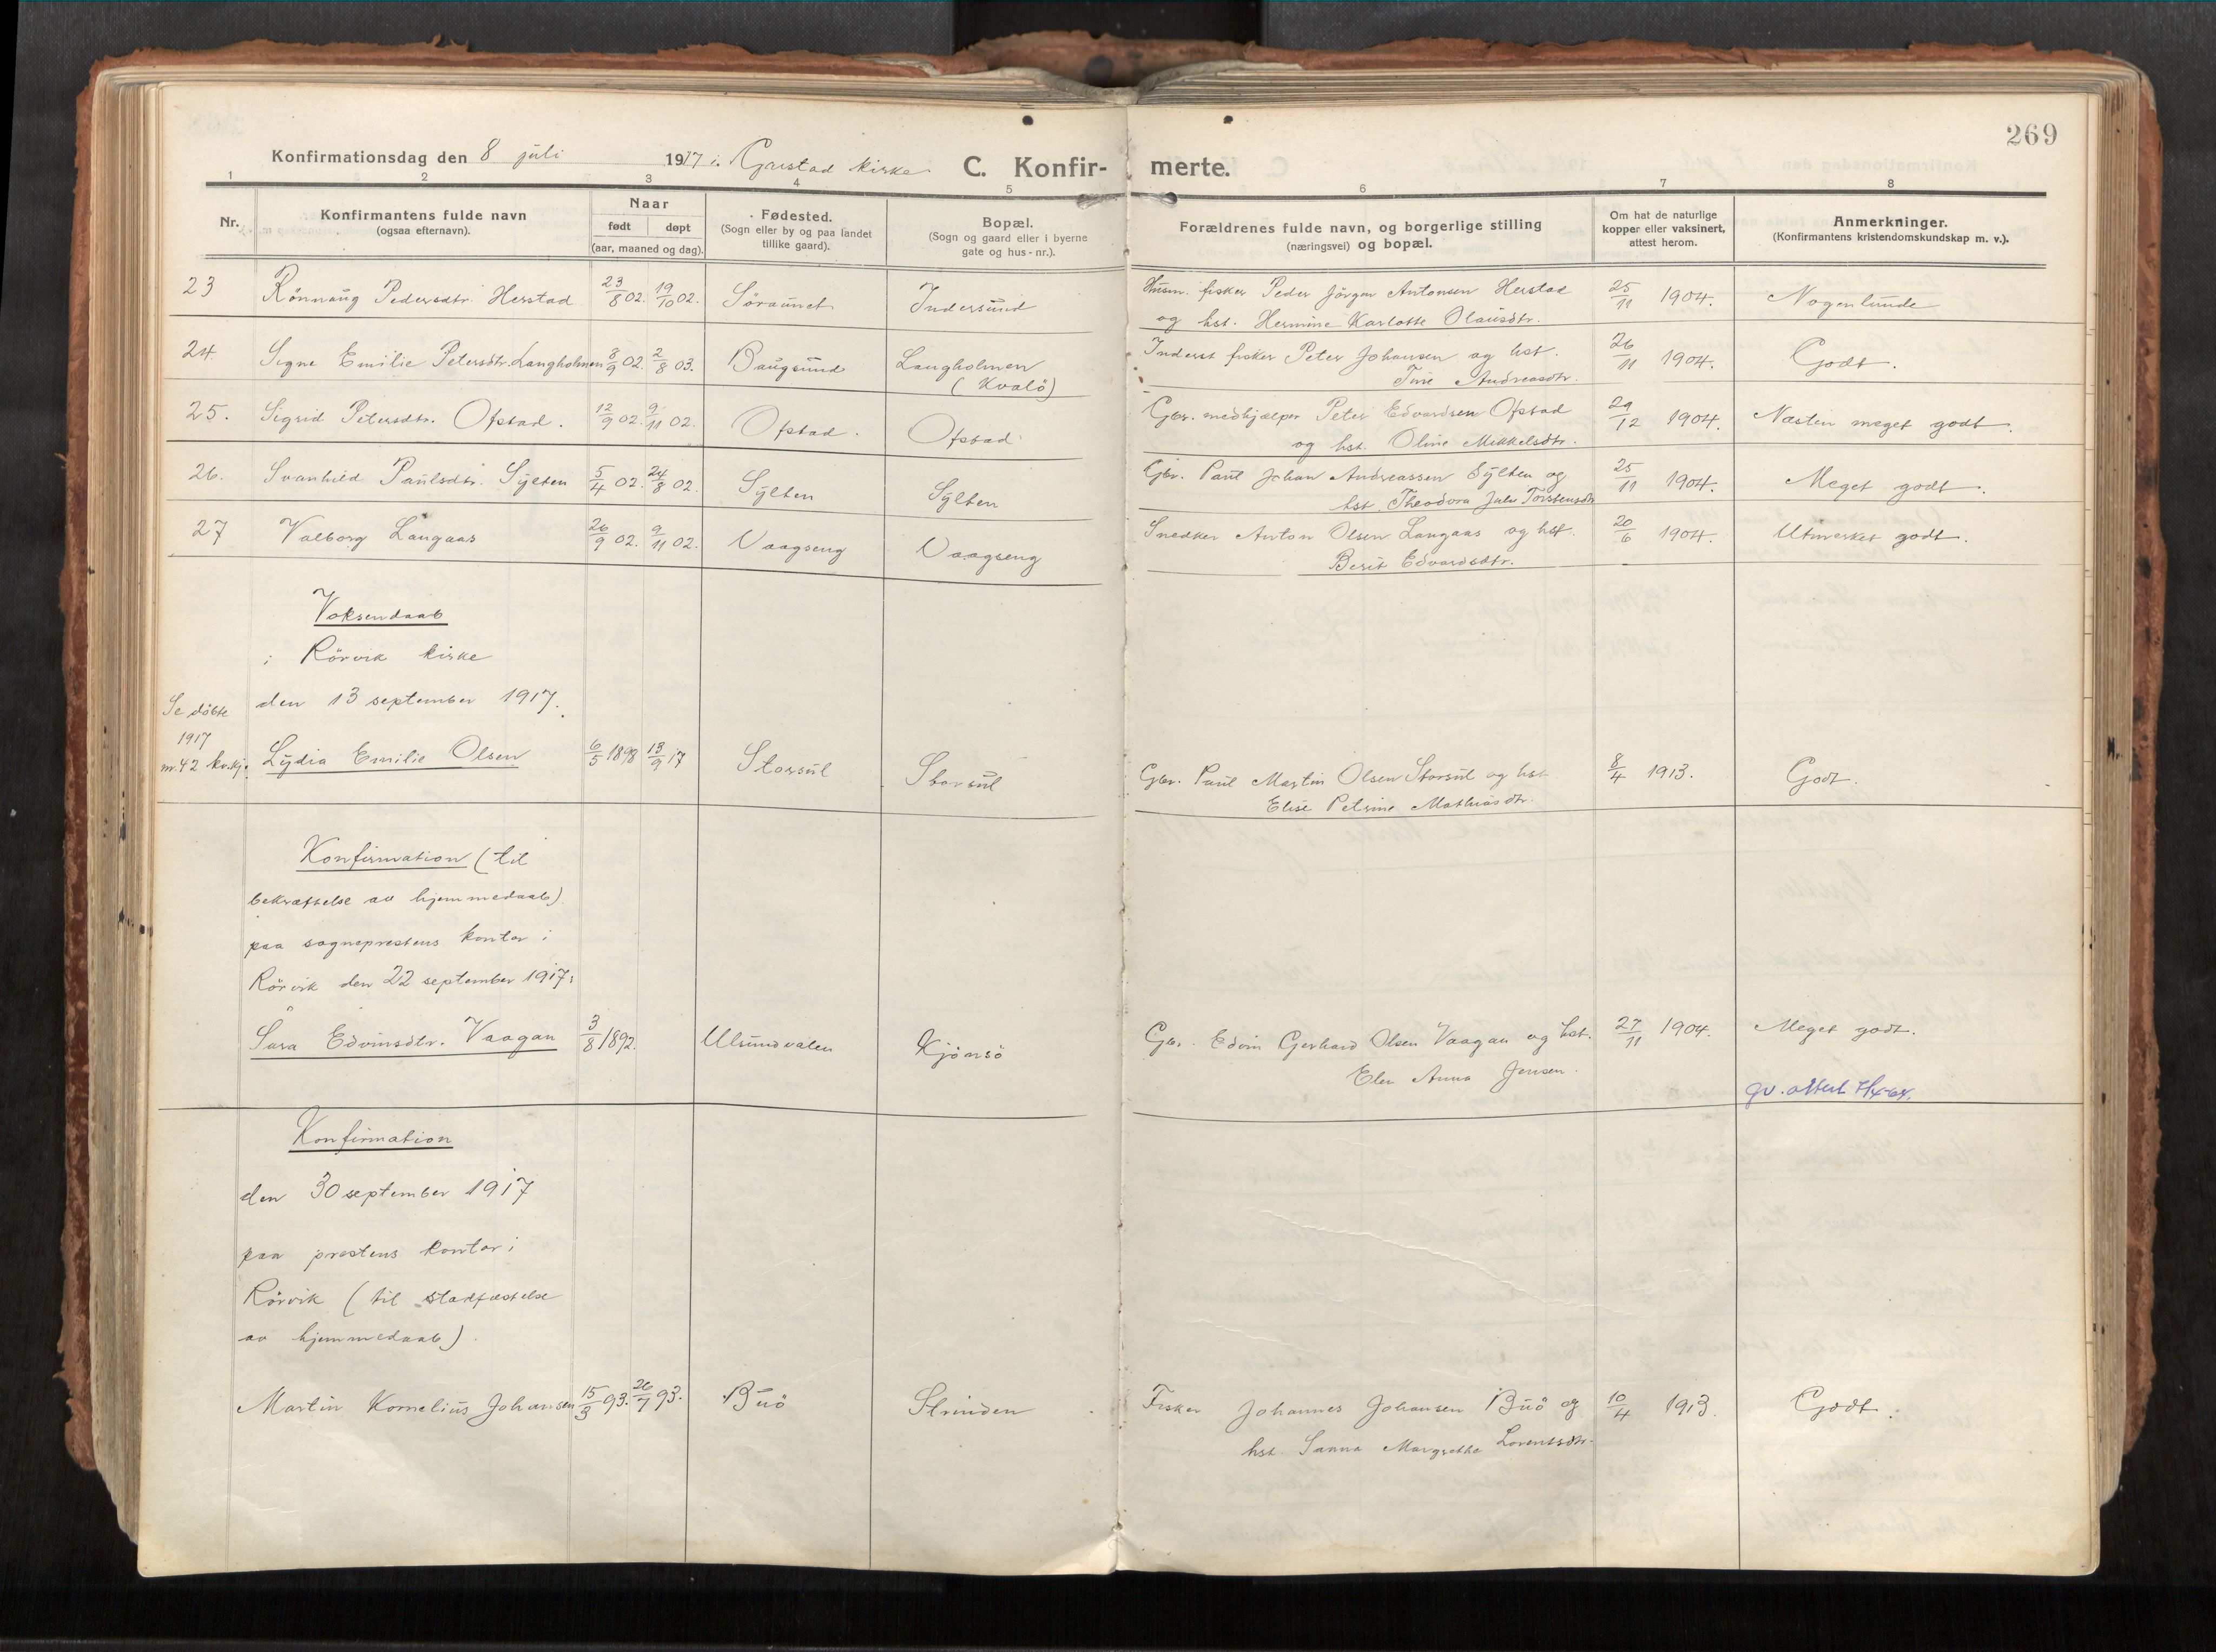 269
Konfirmationsdag den 8 juli 1917 i Garstad kirke. C. Konfir- merte.
1 2 3 4 5 6 7 8
Nr. Konfirmantens fulde navn (ogsaa efternavn). Naar født døpt (aar, maaned og dag). Fødested. (Sogn eller by og paa landet tillike gaard). Bopæl. (Sogn og gaard eller i byerne gate og hus-nr.). Forældrenes fulde navn, og borgerlige stilling (næringsvei) og bopæl. Om hat de naturlige kopper eller vaksinert, attest herom. Anmerkninger. (Konfirmantens kristendomskundskap m. v.).
23 Rönnaug Pedersdtr. Herstad 23/8 02. 19/10 02. Söraunet Indersund Husm. fisker Peder Jörgen Antonsen Herstad 25/11 1904. Nogenlunde
og hst. Hermine Karlotte Olausdtr.
24. Signe Emilie Petersdtr. Langholmen 8/9 02. 2/8 03. Baugsund Langholmen Inderst fisker Peter Johansen og hst. 26/11 1904. Godt.
(Kvalö) Tine Andreasdtr.
25. Sigrid Petersdtr. Ofstad. 12/9 02. 9/11 02. Ofstad. Ofstad Gbr. medhjælper Peter Edvardsen Ofstad 29/12 1904. Næsten meget godt.
og hst. Oline Mikkelsdtr.
26. Svanhild Paulsdtr. Sylten 5/4 02. 24/8 02. Sylten Sylten Gbr. Paul Johan Andreassen Sylten og 25/11 1904. Meget godt.
hst. Theodora Julie Torstensdtr
27 Valborg Langaas 26/9 02. 9/11 02. Vaagseng Vaagseng Snedker Anton Olsen Langaas og hst. 20/6 1904. Utmerket godt.
Berit Edvardsdtr.
Voksendaab
i Rörvik kirke
den 13 september 1917.
Se döbte
1917
nr. 42 kv.kj. Lydia Emilie Olsen 6/5 1898 13/9 17 Storsul Storsul Gbr. Paul Martin Olsen Storsul og hst 8/4 1913. Godt.
Elise Petrine Mathiasdtr.
Konfirmation (til
bekræftelse av hjemmedaab)
paa sogneprestens kontor i
Rörvik den 22 september 1917:
Sara Edvinsdtr. Vaagan 3/8 1892. Ulsundvalen Kjönsö Gbr. Edvin Gerhard Olsen Vaagan og hst. 27/11 1904. Meget godt.
Elen Anna Jensen.
gv. attest
Konfirmation
den 30 september 1917
paa prestens kontor i
Rörvik (til stadfæstelse
av hjemmedaab)
Martin Kornelius Johansen 15/3 93. 26/7 93. Buö Strinden Fisker Johannes Johansen Buö og 10/4 1913. Godt.
hst. Sanna Margrethe Lorentsdtr.